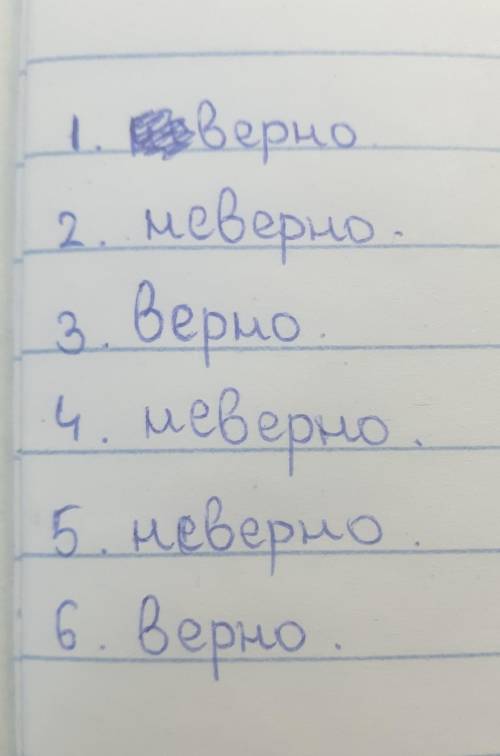 1. верно.
2. неверно.
3. верно.
4. неверно.
5. неверно.
6. верно.